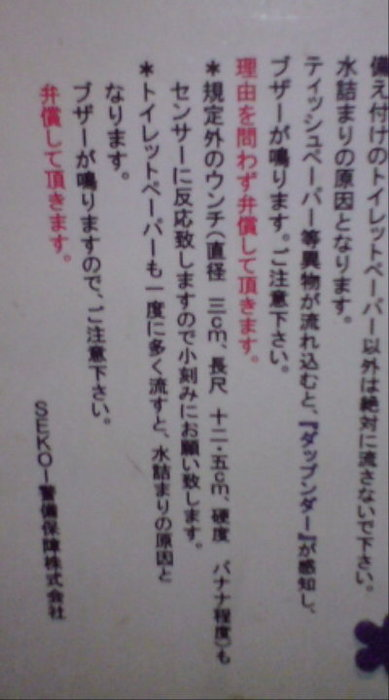 備え付けのトイレットペーパー以外は絶対に流さないで下さい。
水詰まりの原因となります。
ティッシュペーパー等異物が流れ込むと、『ダップンダー』が感知し、
ブザーが鳴ります。ご注意下さい。
理由を問わず弁償して頂きます。
＊規定外のウンチ(直径 三cm、長尺 十二・五cm、硬度 バナナ程度)も
センサーに反応致しますので小刻みにお願い致します。
＊トイレットペーパーも一度に多く流すと、水詰まりの原因と
なります。
ブザーが鳴りますので、ご注意下さい。
弁償して頂きます。
SEKOI警備保障株式会社